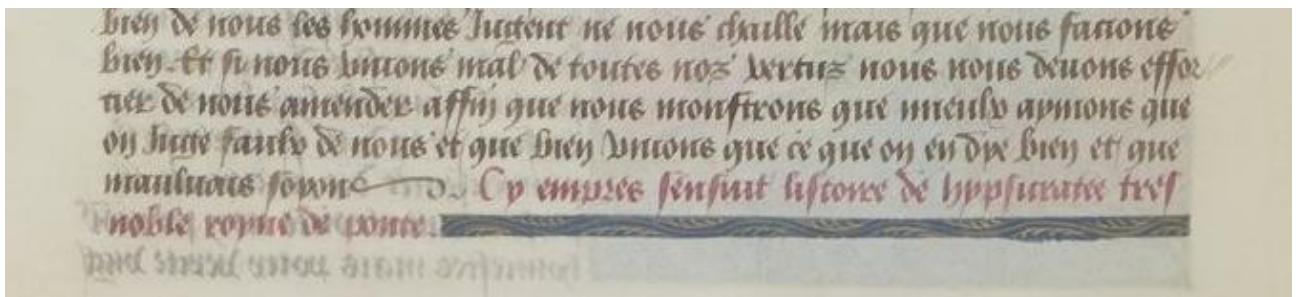 bien de nous les hommes Jugent ne nous chaille mais que nous facions
bien. Et si nous viuons mal de toutes noz vertuz nous nous deuons effor
cier de nous amender affin que nous monstrons que mieulx aymons que
on Juge faulx de nous et que bien viuons que ce que on en dye bien et que
mauluais soyons. Cy empres sensuit listoire de hypsicratee tres
noble royne de ponte.